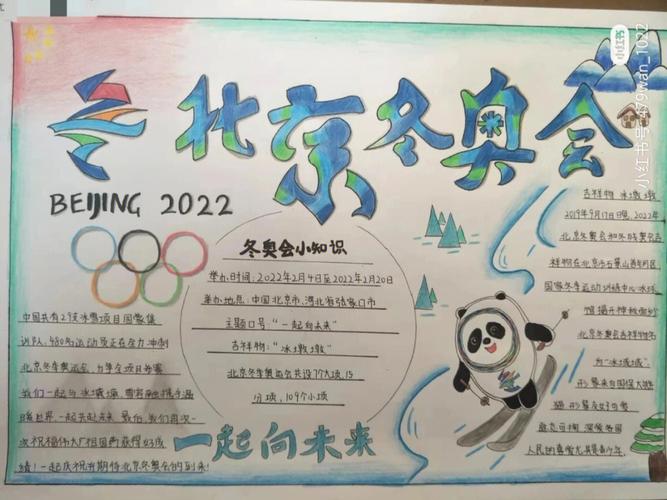 北京冬奥会
BEIJING 2022
冬奥会小知识
举办时间:2022年2月4日至2022年2月20日
举办地点:中国北京市、河北省张家口市
主题口号:“一起向未来”
吉祥物:“冰墩墩”
北京冬季奥运会共设7个大项,15
分项,109个小项
中国共有29支冰雪项目国家集
训队,480名运动员正在全力冲刺
北京冬季奥运会,力争全项目参赛
我们一起与冰墩墩,雪容融携手温
暖世界,一起共赴未来,最后,我们再次一
次祝福伟大厂祖国再获得好成
绩!一起庆祝并期待北京冬奥会的到来!
一起向未来
吉祥物 冰墩墩
2019年9月17日晚,2022年
北京冬奥会和冬残奥会吉
祥物在北京市石景山首钢园区
国家冬季运动训练中心冰球
馆揭开神秘面纱
北京冬奥会吉祥物名
为“冰墩墩”
形象来自国保大熊
猫,形象友好可爱
敦厚可掬,深受各国
人民的喜爱尤其是青少年.
小红书
小红书号:479wan_1022